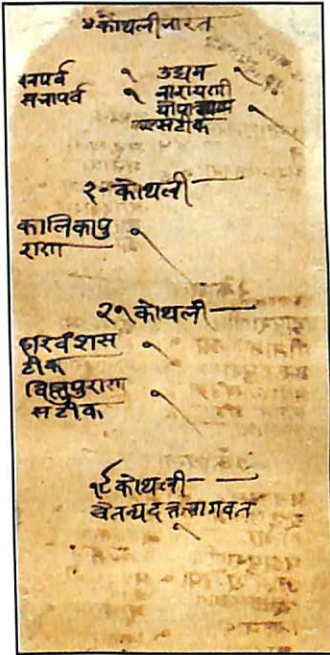 ४ कोथली भारत
वनपर्व १ उद्यम १
सभापर्व १ नारायणी
सटीक
२- कोथली
कालिकापु १
राण
२१ कोथली
हरिवंशस १
टीक
विष्णुपुराण १
सटीक
१९ कोथली
चेतन्यदत्त भागवत